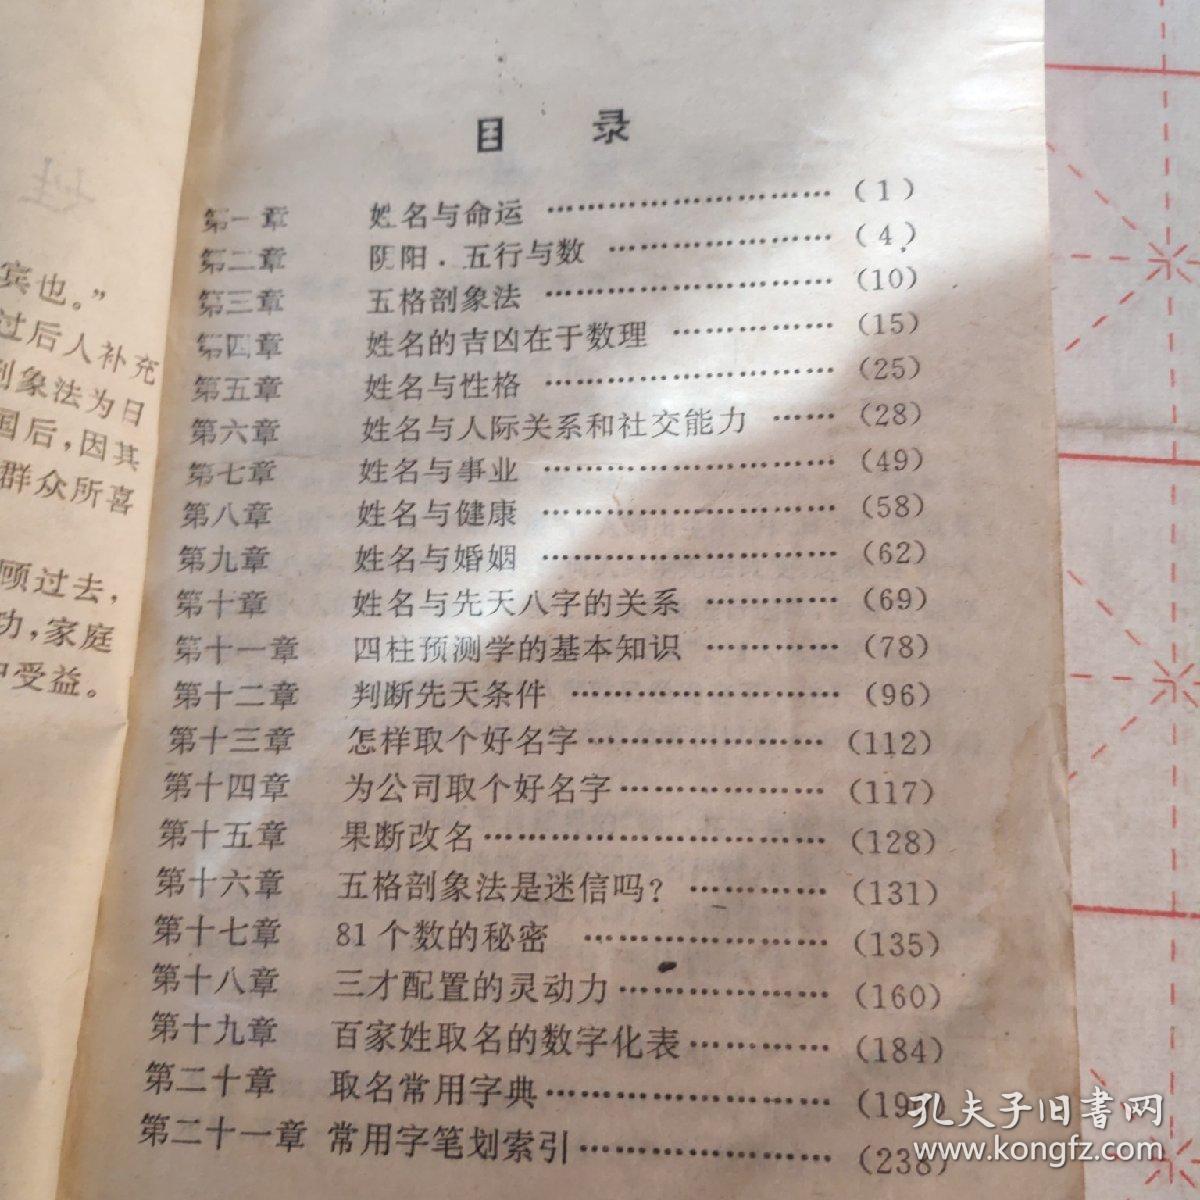 宾也。”
过后人补充
剖象法为日
国后，因其
群众所喜
顾过去，
功，家庭
中受益。
目 录
第一章 姓名与命运 ……………………… (1)
第二章 阴阳．五行与数 ………………… (4)
第三章 五格剖象法 ……………………… (10)
第四章 姓名的吉凶在于数理 …………… (15)
第五章 姓名与性格 ……………………… (25)
第六章 姓名与人际关系和社交能力 …… (28)
第七章 姓名与事业 ……………………… (49)
第八章 姓名与健康 ……………………… (58)
第九章 姓名与婚姻 ……………………… (62)
第十章 姓名与先天八字的关系 ………… (69)
第十一章 四柱预测学的基本知识 ………… (78)
第十二章 判断先天条件 …………………… (96)
第十三章 怎样取个好名字………………… (112)
第十四章 为公司取个好名字……………… (117)
第十五章 果断改名………………………… (128)
第十六章 五格剖象法是迷信吗？ ………… (131)
第十七章 81个数的秘密 ………………… (135)
第十八章 三才配置的灵动力……………… (160)
第十九章 百家姓取名的数字化表………… (184)
第二十章 取名常用字典……………………
第二十一章 常用字笔划索引………………… (238)
孔夫子旧书网
www.kongfz.com